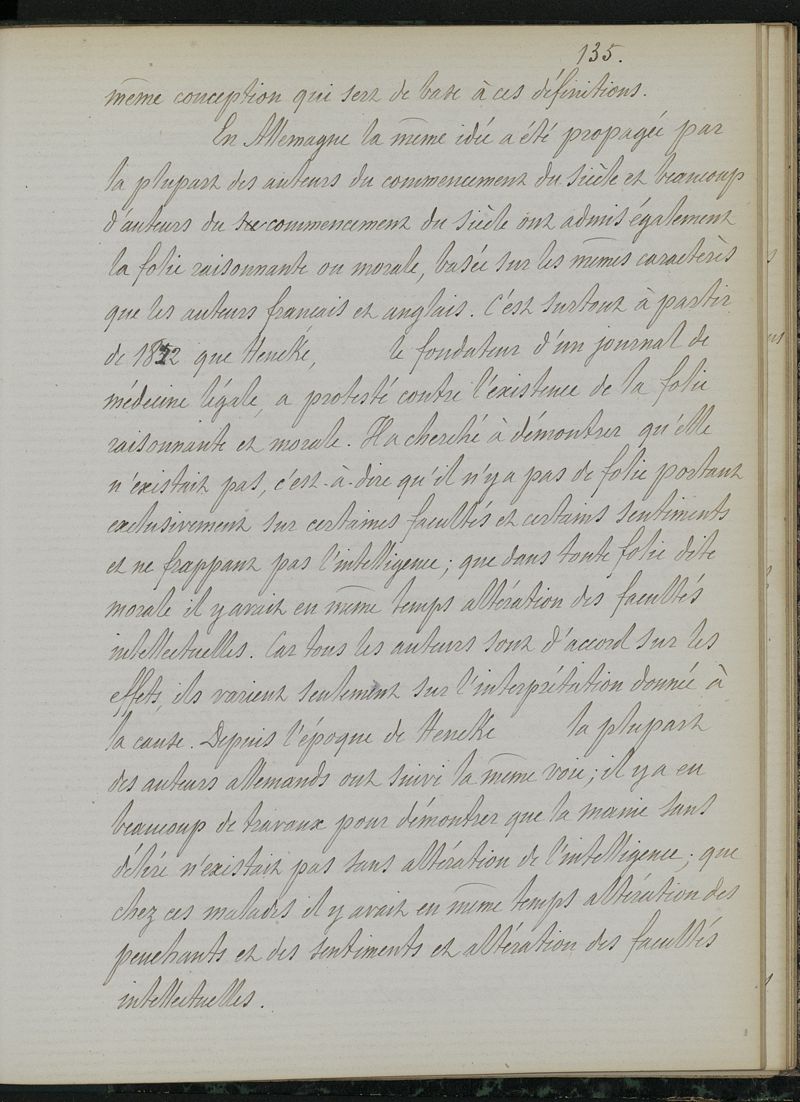 135.
même conception qui sert de base à ces définitions.
En Allemagne la même idée a été propagée par
la plupart des auteurs du commencement du siècle et beaucoup
d'auteurs du commencement du siècle ont admis également
la folie raisonnante ou morale, basée sur les mêmes caractères
que les auteurs francais et anglais. C'est surtout à partir
de 1822 que Hencké, le fondateur d'un journal de
médecine légale, a protesté contre l'existence de la folie
raisonnante et morale. Il a cherché à démontrer qu'elle
n'existait pas, c'est-à-dire qu'il n'y a pas de folie portant
exclusivement sur certaines facultés et certains sentiments
et ne frappant pas l'intelligence; que dans toute folie dite
morale il y avait en même temps altération des facultés
intellectuelles. Car tous les auteurs sont d'accord sur les
effets, ils varient seulement sur l'interprétation donnée à
la cause. Depuis l'époque de Hencké la plupart
des auteurs allemands ont suivi la même voie; il y a eu
beaucoup de travaux pour démontrer que la manie sans
délire n'existait pas sans altération de l'intelligence; que
chez ces malades il y avait en même temps altération des
penchants et des sentiments et altération des facultés
intellectuelles.